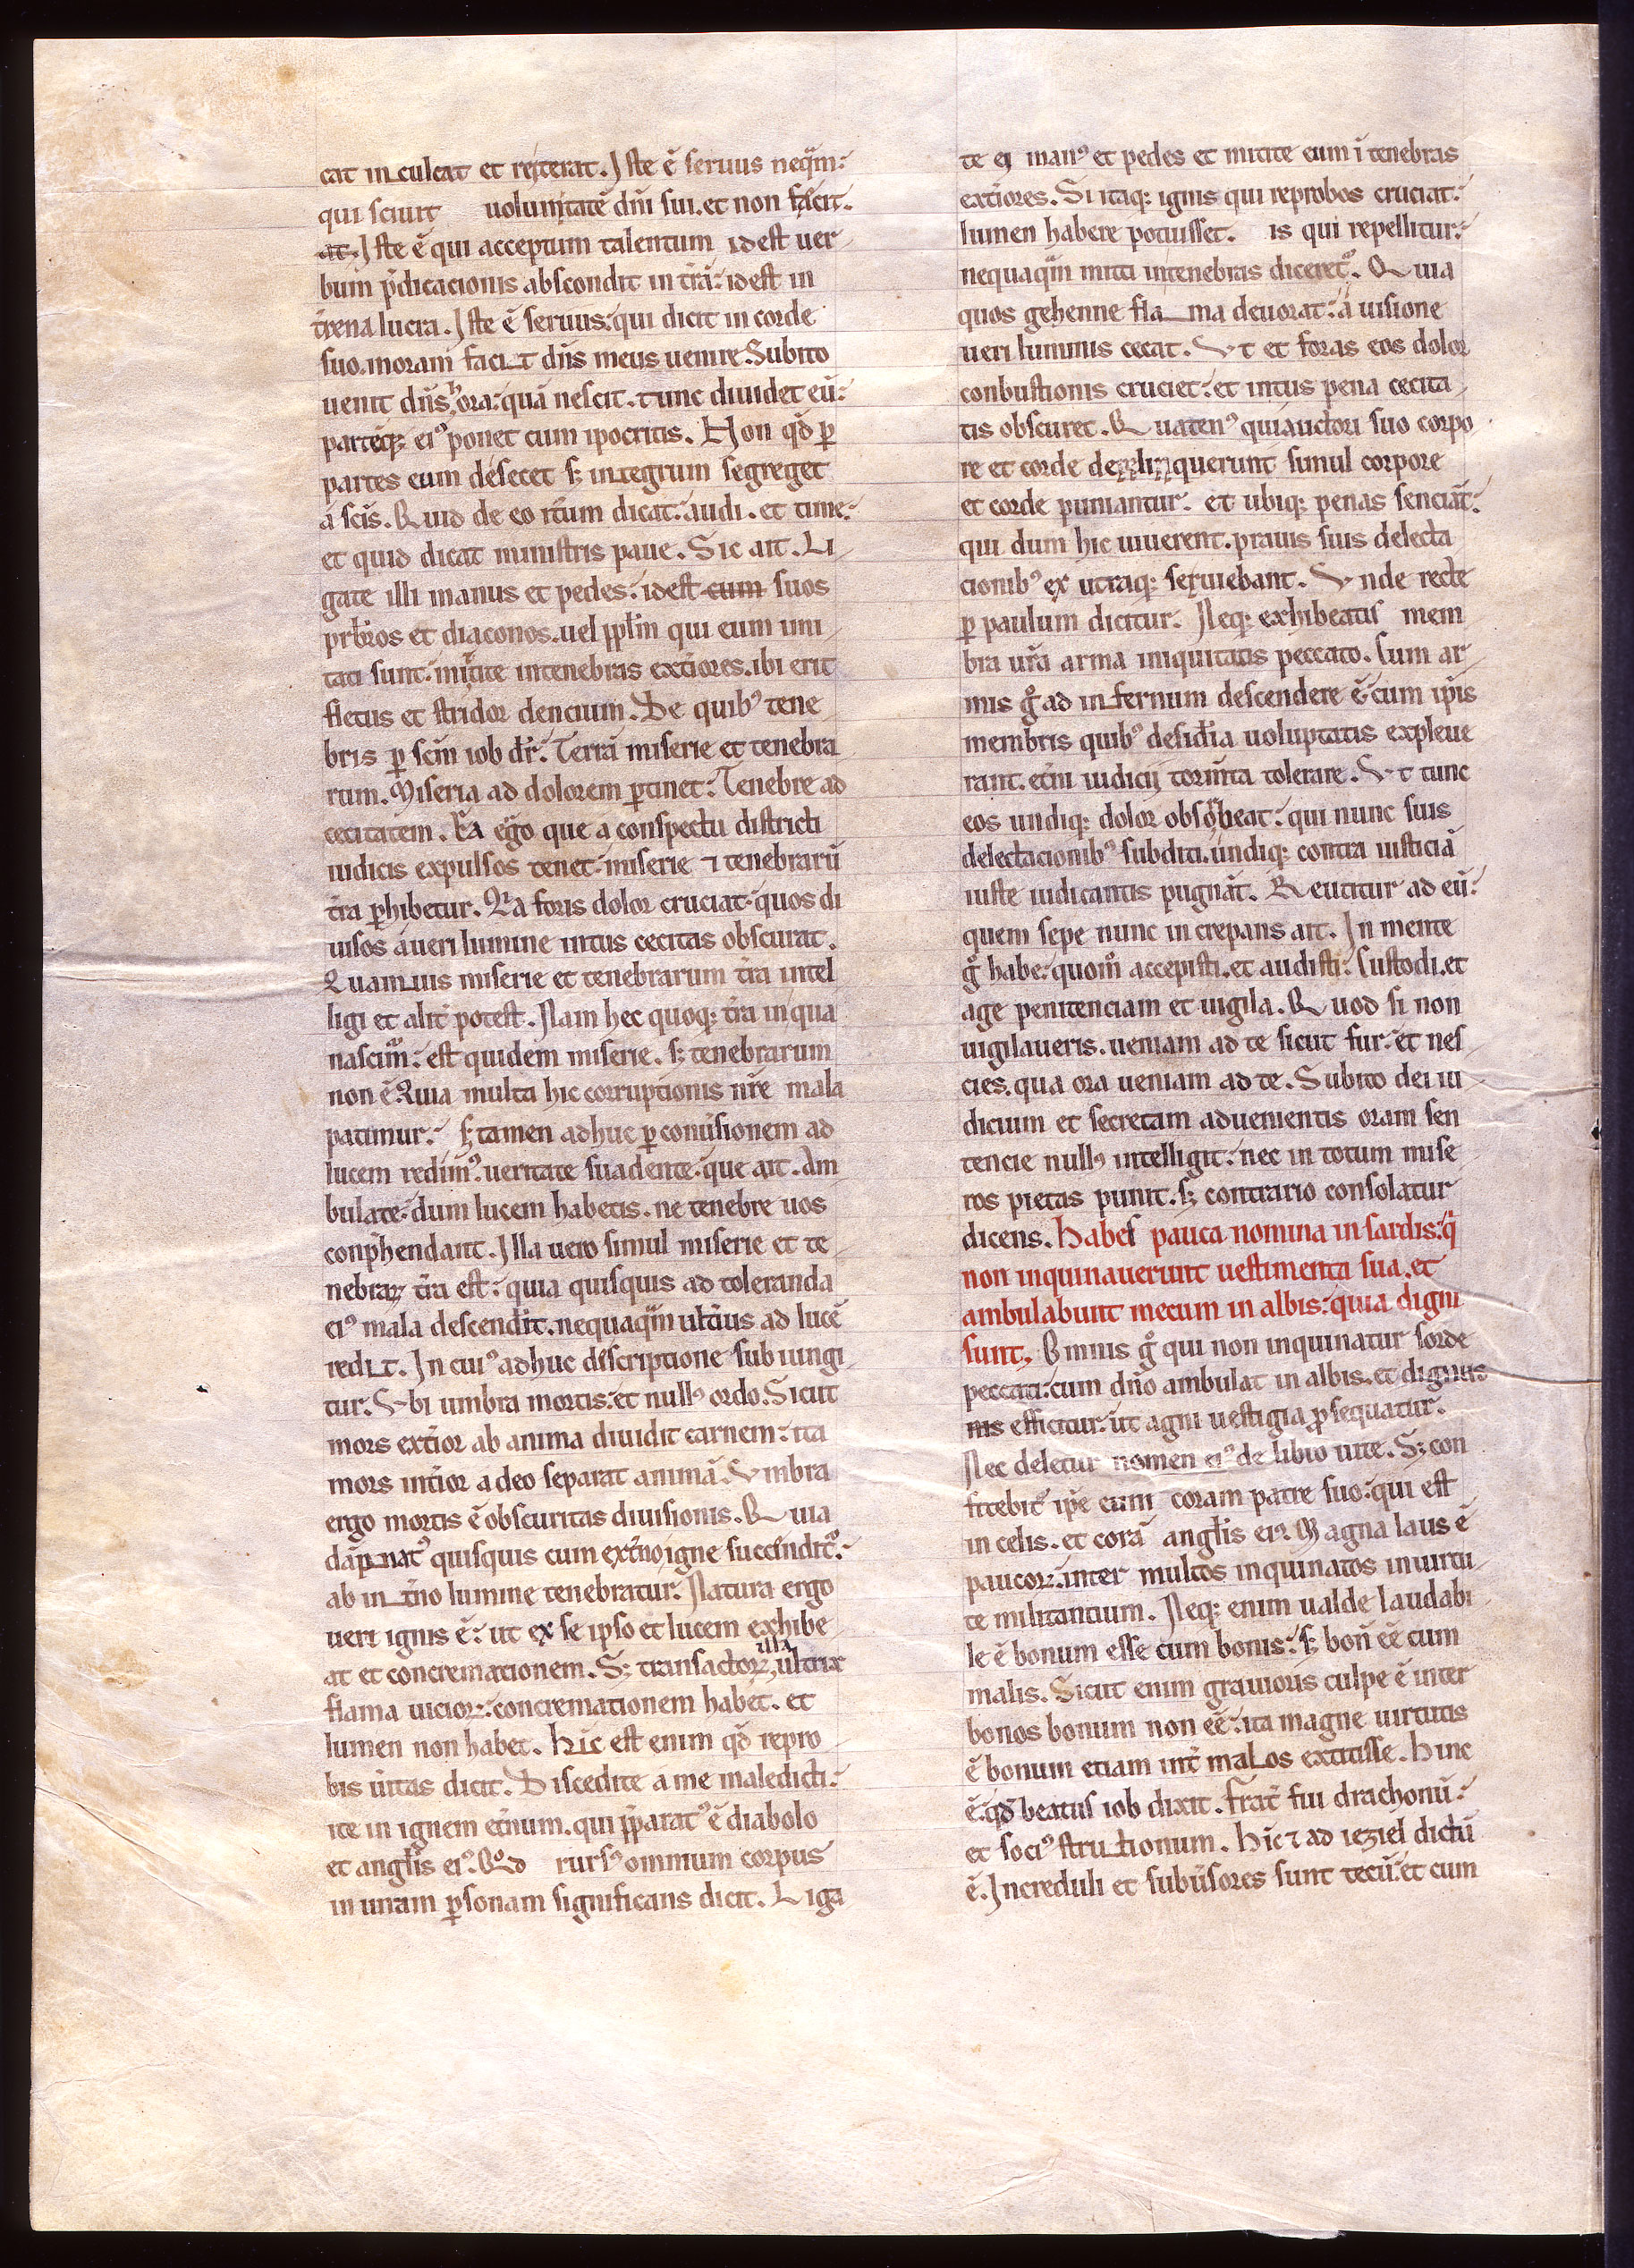 cat inculcat et rejterat. Iste ē seruus neq̄m:
qui sciuit uoluntatē dn̄i sui. et non facit.
at. Iste ē qui acceptum talentum idest uer
bum p̄dicacionis abscondit in t̄rā: idest in
t̄rena lucra. Iste ē seruus: qui dicit in corde
suo. moram facit dn̄s meus uenire. Subito
uenit dn̄s hora: quā nescit. tunc diuidet eū:
partēq; ei⁹ ponet cum ipocritis. Non qd̄ p̱
partes eum desecet sꝫ integrum segreget
a sc̄is. Quid de eo it̄um dicat: audi. et time:
et quid dicat ministris paue. Sic ait. Li
gate illi manus et pedes: idest cum suos
prb̄ros et diaconos. uel ppl̄m qui eum imi
tati sunt. mitite intenebras ext̄iores. ibi erit
fletus et stridor dencium. De quib⁹ tene
bris p̱ sc̄m iob dr̄. Terrā miserie et tenebra
rum. Miseria ad dolorem p̱tinet: Tenebre ad
cecitatem. Ea ergo que a conspectu districti
iudicis expulsos tenet: miserie ⁊ tenebrarū
t̄ra p̱hibetur. Q̄a foris dolor cruciat: quos di
uisos a ueri lumine intus cecitas obscurat.
Quamuis miserie et tenebrarum t̄ra intel
ligi et alit̄ potest. Nam hec quoq; t̄ra in qua
nascim̄: est quidem miserie. sꝫ tenebrarum
non ē. Quia multa hic corruptionis nr̄e mala
patimur: sꝫ tamen adhuc p̱ conuīsionem ad
lucem redim⁹. ueritate suadente. que ait. Am
bulate: dum lucem habetis. ne tenebre uos
conp̄hendant. Illa uero simul miserie et te
nebraꝝ t̄ra est: quia quisquis ad toleranda
ei⁹ mala descendit. nequaq̄m ult̄ius ad lucē
redit. In cui⁹ adhuc discriptione subiungi
tur. Ubi umbra mortis: et null⁹ ordo. Sicut
mors ext̄ior ab anima diuidit carnem: ita
mors int̄ior a deo separat animā. Umbra
ergo mortis ē obscuritas diuisionis. Quia
dāpnat⁹ quisquis cum ext̄no igne succendit᷑:
ab int̄no lumine tenebratur. Natura ergo
ueri ignis ē: ut ex se ipso et lucem exhibe
at et concremationem. Sꝫ transactoꝝ illa ultrix
flama uicioꝝ: concremationem habet. et
lumen non habet. Hic est enim qd̄ repro
bis ūitas dicit. Discedite a me maledicti:
ite in ignem et̄num. qui p̄parat⁹ ē diabolo
et angl̄is ei⁹. Quod rurs⁹ omnium corpus
in unam p̱sonam significans dicit. Liga
te ei man⁹ et pedes et mitite eum ī tenebras
ext̄iores. Si itaq; ignis qui reprobos cruciat:
lumen habere potuisset. is qui repellitur:
nequaq̄m mitti intenebras diceret᷑. Quia
quos gehenne flama deuorat: a uisione
ueri luminis cecat. Ut et foras eos dolor
conbustionis cruciet: et intus pena cecita
tis obscuret. Quaten⁹ qui auctori suo corpo
re et corde delinquerunt simul corpore
et corde puniantur. et ubiq; penas senciāt:
qui dum hic uiuerent. prauis suis delecta
cionib⁹ ex utraq; seruiebant. Unde recte
p̱ paulum dicitur. Neq; exhibeatis mem
bra ur̄a arma iniquitatis peccato. Cum ar
mis g͛ ad infernum descendere ē. cum ip̄is
membris quib⁹ desidīa uoluptatis expleue
rant. et̄ni iudicij torm̄ta tolerare. Ut tunc
eos undiq; dolor obsorbeat: qui nunc suis
delectacionib⁹ subditi. undiq; contra iusticiā
iuste iudicantis pugnāt. Reutitur ad eū:
quem sepe nunc increpans ait. In mente
g͛ habe: quom̄ accepisti. et audisti: Custodi. et
age penitenciam et uigila. Quod si non
uigilaueris. ueniam ad te sicut fur: et nes
cies. qua ora ueniam ad te. Subito dei iu
dicium et secretam aduenientis oram sen
tencie null⁹ intelligit: nec in totum mise
ros pietas punit. sꝫ contrario consolatur
dicens. Habes pauca nomina in sardis: q̄
non inquinauerunt uestimenta sua. et
ambulabunt mecum in albis: quia digni
sunt. Omnis g͛ qui non inquinatur sorde
peccati: cum dn̄o ambulat in albis. et dignus
nis efficitur: ut agni uestigia p̱sequatur.
Nec deletur nomen ei⁹ de libro uite. Sꝫ con
fitebit᷑ ip̄e eum coram patre suo: qui est
in celis. et corā angl̄is ei⁹. Magna laus ē
paucoꝝ: inter multos inquinatos in uirtu
te militantium. Neq; enim ualde laudabi
le ē bonum esse cum bonis: sꝫ bon̄ eē cum
malis. Sicut enim grauioris culpe ē inter
bonos bonum non eē: ita magne uirtutis
ē bonum etiam int̄ malos extitisse. Hinc
ē: qd̄ beatus iob dixit. Frat̄ fui drachonū:
et soci⁹ strutionum. Hic ⁊ ad ieziel dictū
ē. Increduli et subūsores sunt tecū. et cum